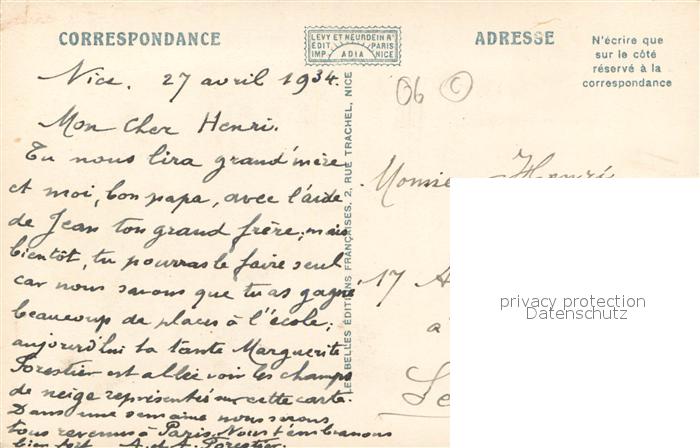 CORRESPONDANCE
LEVY ET NEURDEIN Rs
EDIT PARIS
IMP ADIA NICE
ADRESSE
N'écrire que
sur le côté
réservé à la
correspondance
Nice. 27 avril 1934.
Mon cher Henri.
Tu nous lira grand'mère
et moi, bon papa, avec l'aide
de Jean ton grand frère; mais
bientôt, tu pourras le faire seul
car nous savons que tu as gagné
beaucoup de places à l'école;
aujourd'hui ta tante Marguerite
Forestier est allée voir les champs
de neige représentés sur cette carte.
Dans une semaine nous serons
tous revenus à Paris. Nous t'embrassons
bien fort. A. et A. Forestier.
LES BELLES ÉDITIONS FRANÇAISES, 2, RUE TRACHEL, NICE
06 C
Monsie Henri
17 A
à
Le
privacy protection
Datenschutz